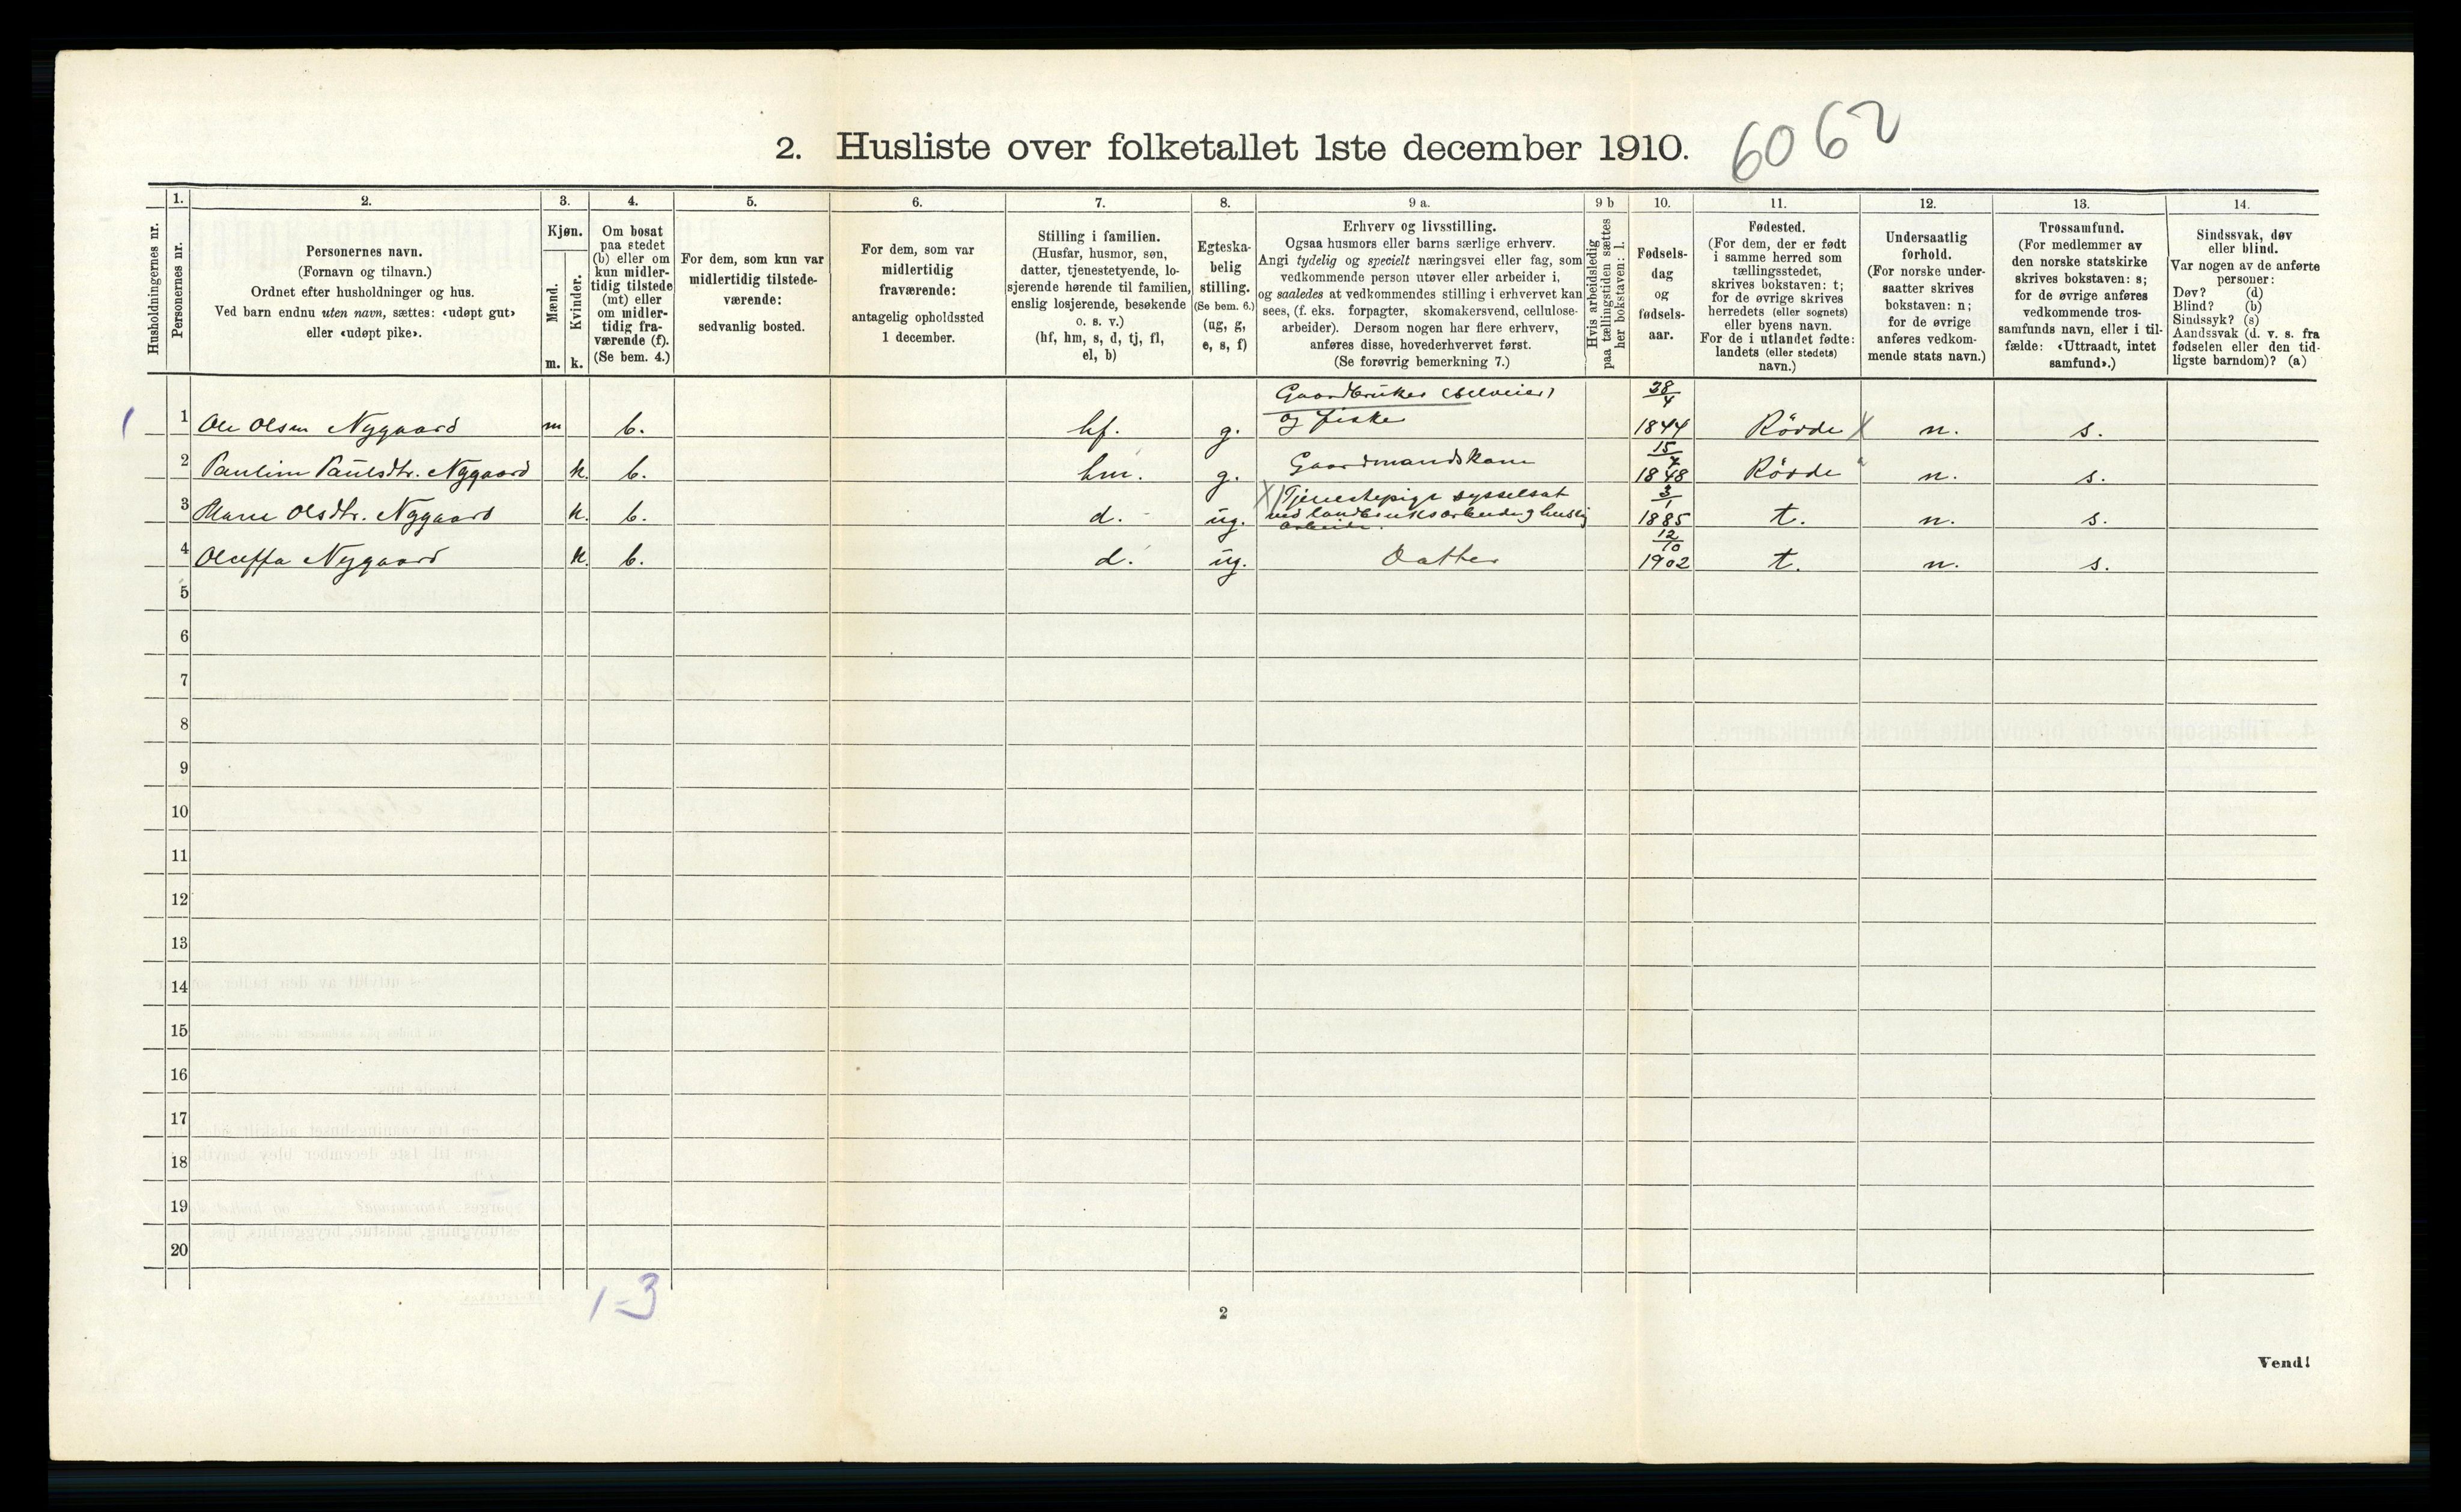 2. Husliste over folketallet 1ste december 1910. 6062
Husholdningernes nr.
1. Personernes nr.
2.
Personernes navn.
(Fornavn og tilnavn.)
Ordnet efter husholdninger og hus.
Ved barn endnu uten navn, sættes: «udøpt gut»
eller «udøpt pike».
3.
Kjøn.
Mænd. Kvinder.
m. k.
4.
Om bosat
paa stedet
(b) eller om
kun midler-
tidig tilstede
(mt) eller
om midler-
tidig fra-
værende (f).
(Se bem. 4.)
5.
For dem, som kun var
midlertidig tilstede-
værende:
sedvanlig bosted.
6.
For dem, som var
midlertidig
fraværende:
antagelig opholdssted
1 december.
7.
Stilling i familien.
(Husfar, husmor, søn,
datter, tjenestetyende, lo-
sjerende hørende til familien,
enslig losjerende, besøkende
o. s. v.)
(hf, hm, s, d, tj, fl,
el, b)
8.
Egteska-
belig
stilling.
(Se bem. 6.)
(ug, g,
e, s, f)
9 a.
Erhverv og livsstilling.
Ogsaa husmors eller barns særlige erhverv.
Angi tydelig og specielt næringsvei eller fag, som
vedkommende person utøver eller arbeider i,
og saaledes at vedkommendes stilling i erhvervet kan
sees, (f. eks. forpagter, skomakersvend, cellulose-
arbeider). Dersom nogen har flere erhverv,
anføres disse, hovederhvervet først.
(Se forøvrig bemerkning 7.)
9 b
Hvis arbeidsledig
paa tællingstiden sættes
her bokstaven: l.
10.
Fødsels-
dag
og
fødsels-
aar.
11.
Fødested.
(For dem, der er født
i samme herred som
tællingsstedet,
skrives bokstaven: t;
for de øvrige skrives
herredets (eller sognets)
eller byens navn.
For de i utlandet fødte:
landets (eller stedets)
navn.)
12.
Undersaatlig
forhold.
(For norske under-
saatter skrives
bokstaven: n;
for de øvrige
anføres vedkom-
mende stats navn.)
13.
Trossamfund.
(For medlemmer av
den norske statskirke
skrives bokstaven: s;
for de øvrige anføres
vedkommende tros-
samfunds navn, eller i til-
fælde: «Uttraadt, intet
samfund».)
14.
Sindssvak, døv
eller blind.
Var nogen av de anførte
personer:
Døv? (d)
Blind? (b)
Sindssyk? (s)
Aandssvak (d. v. s. fra
fødselen eller den tid-
ligste barndom)? (a)
1 1 Ole Olsen Nygaard m b. hf. g. Gaardbruker (selveier) og fiske 28/4 1844 Rövde X n. s.
2 Pauline Paulsdtr. Nygaard k. b. hm. g. Gaardmandskone 15/7 1848 Rövde n. s.
3 Marie Olsdtr. Nygaard k. b. d. ug. X) Tjenestepige sysselsat ved landbruksarbeide og huslig arbeide. 3/1 1885 t. n. s.
4 Oluffa Nygaard k. b. d. ug. Datter 12/10 1902 t. n. s.
5
6
7
8
9
10
11
12
13
14
15
16
17
18
19
20
1-3
2
Vend!